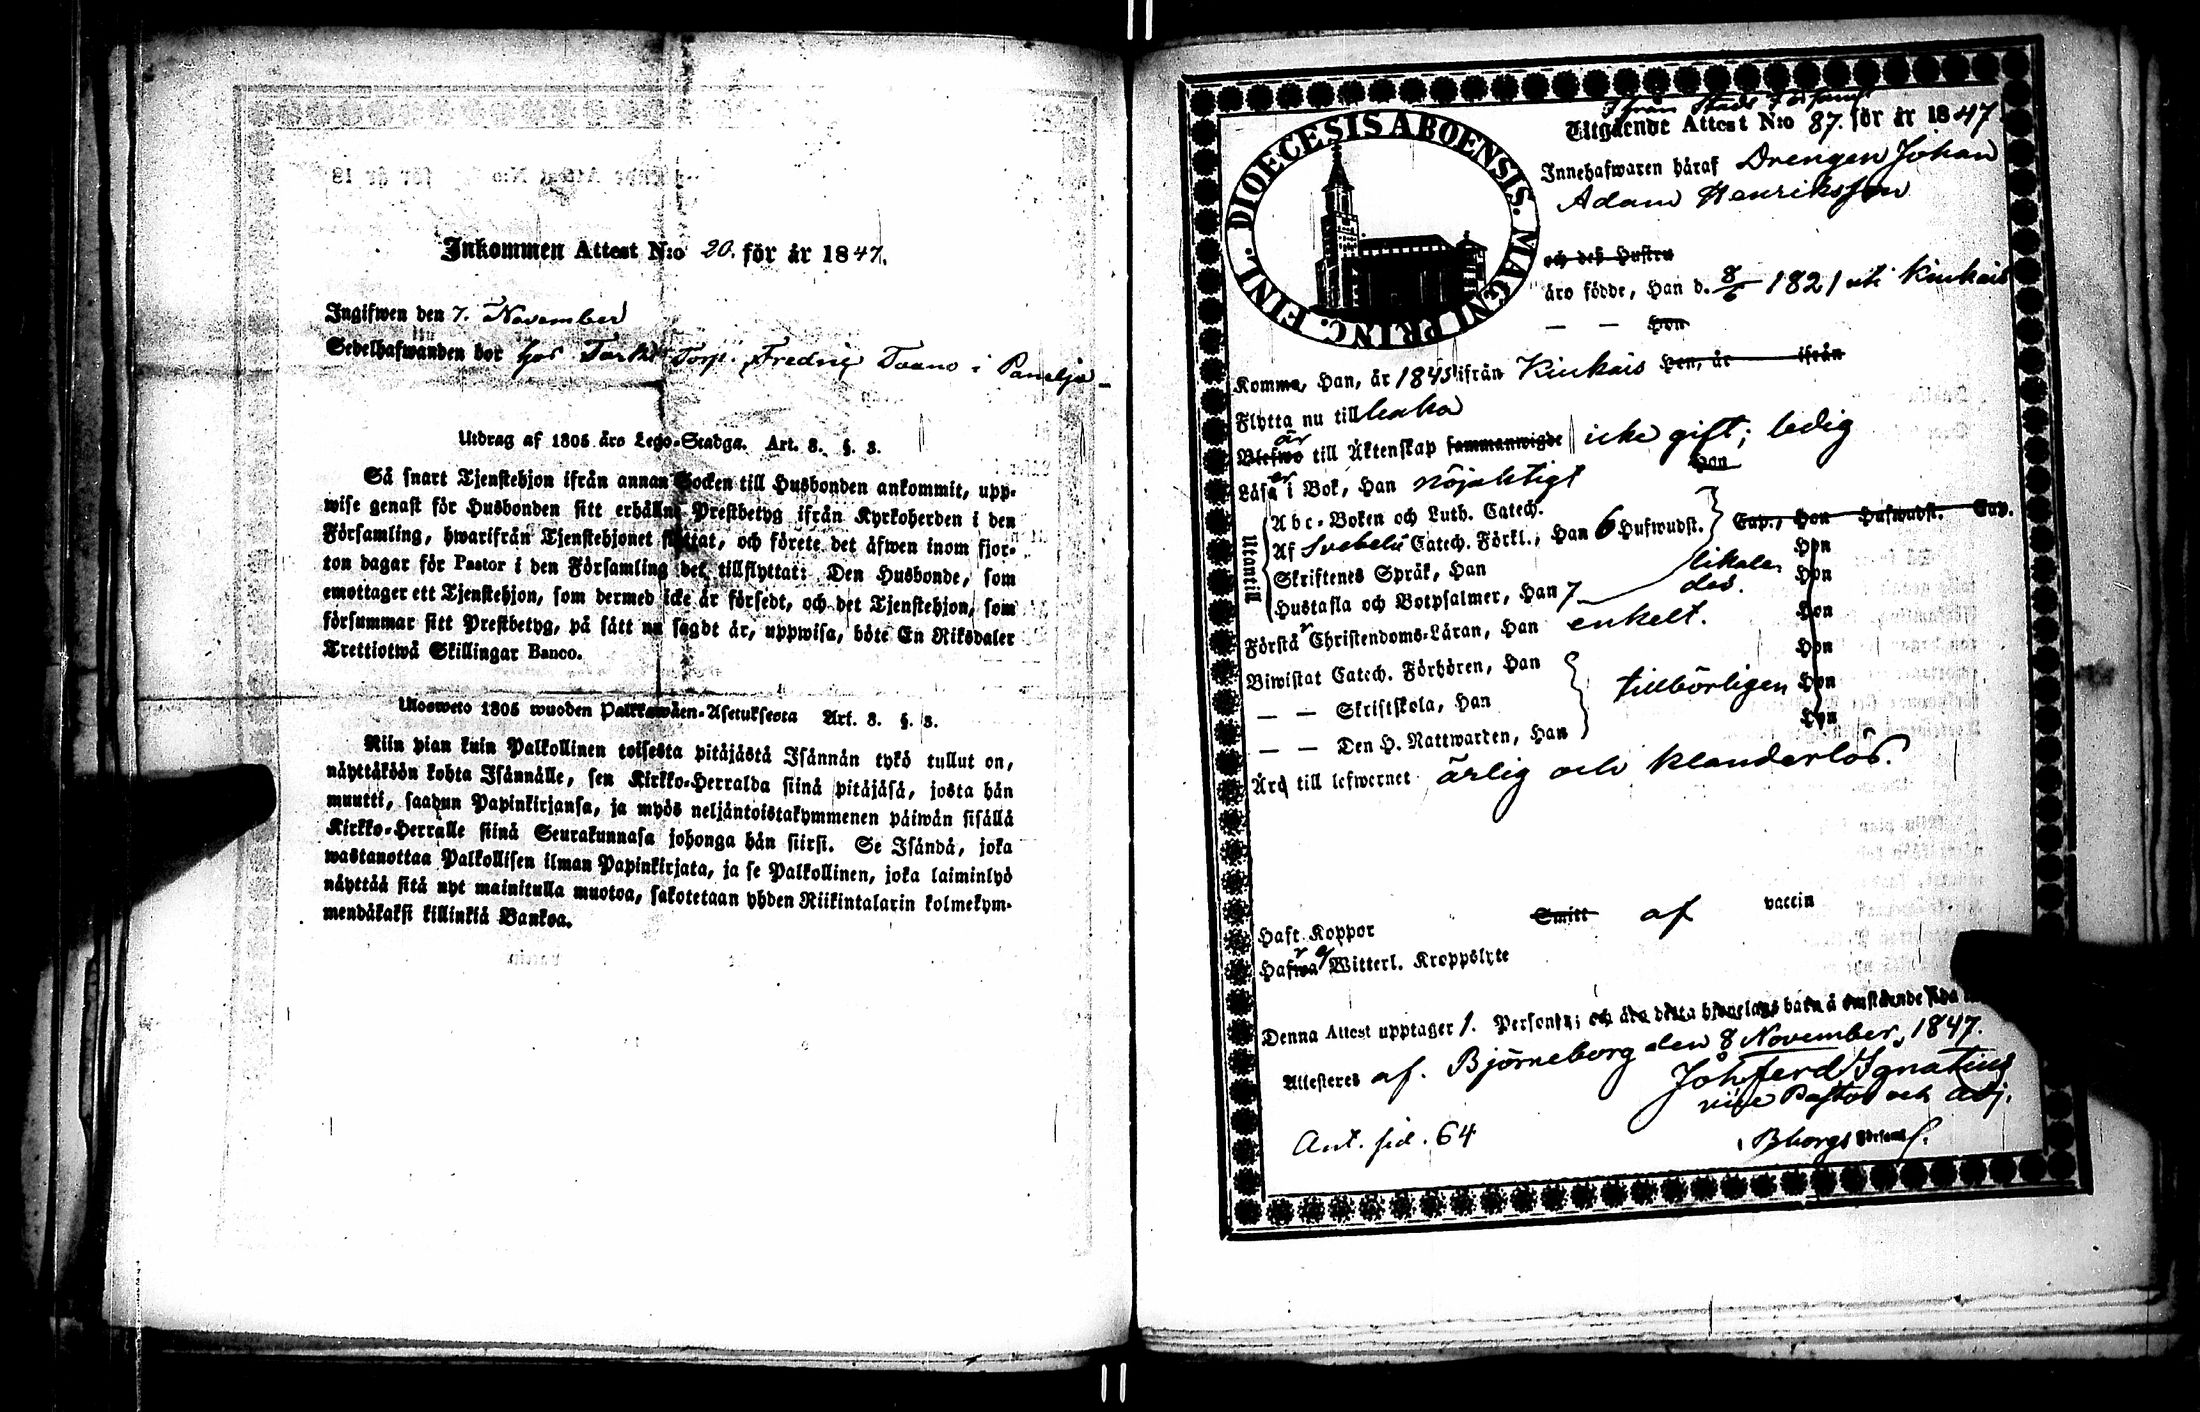 Inkommen Attest N:o 20. för år 1847.
Ingifwen den 7. November
Sedelhafwanden bor hos Torp. Fredrig i
Utdrag af 1805 års Lego-Stadga. Art. 8. §. 3.
Så snart Tjenstehjon ifrån annan Socken till Husbonden ankommit, upp-
wise genast för Husbonden sitt erhållne Prestbetyg ifrån Kyrkoherden i den
Församling, hwarifrån Tjenstehjonet flyttat, och förete det äfwen inom fjor-
ton dagar för Pastor i den Församling det tillflyttat: Den Husbonde, som
emottager ett Tjenstehjon, som dermed icke är försedt, och det Tjenstehjon, som
försummar sitt Prestbetyg, på sätt nu sagdt är, uppwisa, böte En Riksdaler
Trettiotwå Skillingar Banco.
Ulosweto 1805 wuoden Palkkawäen-Asetuksesta Art. 8. §. 3.
Niin pian kuin Palkollinen toisesta pitäjästä Isännän tykö tullut on,
näyttäköön kohta Isännälle, sen Kirkko-Herralda siinä pitäjäsä, josta hän
muutti, saahun Papinkirjansa, ja myös neljäntoistakymmenen päiwän sisällä
Kirkko-Herralle siinä Seurakunnasa johonga hän siirsi. Se Isändä, joka
wastanottaa Palkollisen ilman Papinkirjata, ja se Palkollinen, joka laiminlyö
näyttää sitä nyt mainitulla muotoa, sakotetaan yhden Riikintalarin kolmekym-
mendäkaksi killinkiä Bankoa.
FINL. DIOECESIS ABOENSIS. MAGNI PRINC.
Ifrån Stads Församl
Utgående Attest N:o 87. för år 1847
Innehafwaren häraf Drengen Johan
Adam Henriksson
och deß Hustru
äro födde, Han d. 8/6 1821 uti Kiukais
— — Hon
Komma, Han, år 1845 ifrån Kiukais Hon, år ifrån
Flytta nu till
är
Blefwo till Äktenskap sammanwigde icke gift; ledig
Läsa i Bok, Han nöjaktigt Hon
Utantill
Abc-Boken och Luth. Catech.
Af Svebelii Catech. Förkl., Han 6 Hufwudst. Cap., Hon Hufwudst. Cap.
Skriftenes Språk, Han likale- Hon
Hustafla och Botpsalmer, Han 7 des. Hon
Förstå Christendoms-Läran, Han enkelt. Hon
Biwistat Catech. Förhören, Han Hon
— — Skriftskola, Han tillbörligen Hon
— — Den H. Nattwarden, Han Hon
Äro till lefwernet ärlig och klanderlös.
Haft Koppor Smitt af vaccin
Hafwa Witterl. Kroppslyte
Denna Attest upptager 1. Personer; och äro detta hjonelags barn å omstående sida
Attesteres af. Björneborg den 8 November, 1847.
Joh Ferd Ignatius
vice Pastor och Adj.
i Bborgs Församl.
Ant. sid. 64